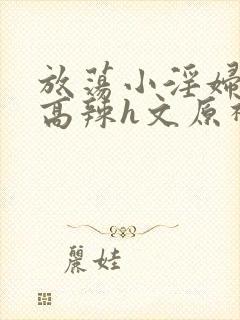 放蕩小淫婦
高辣h文原神
麗娃